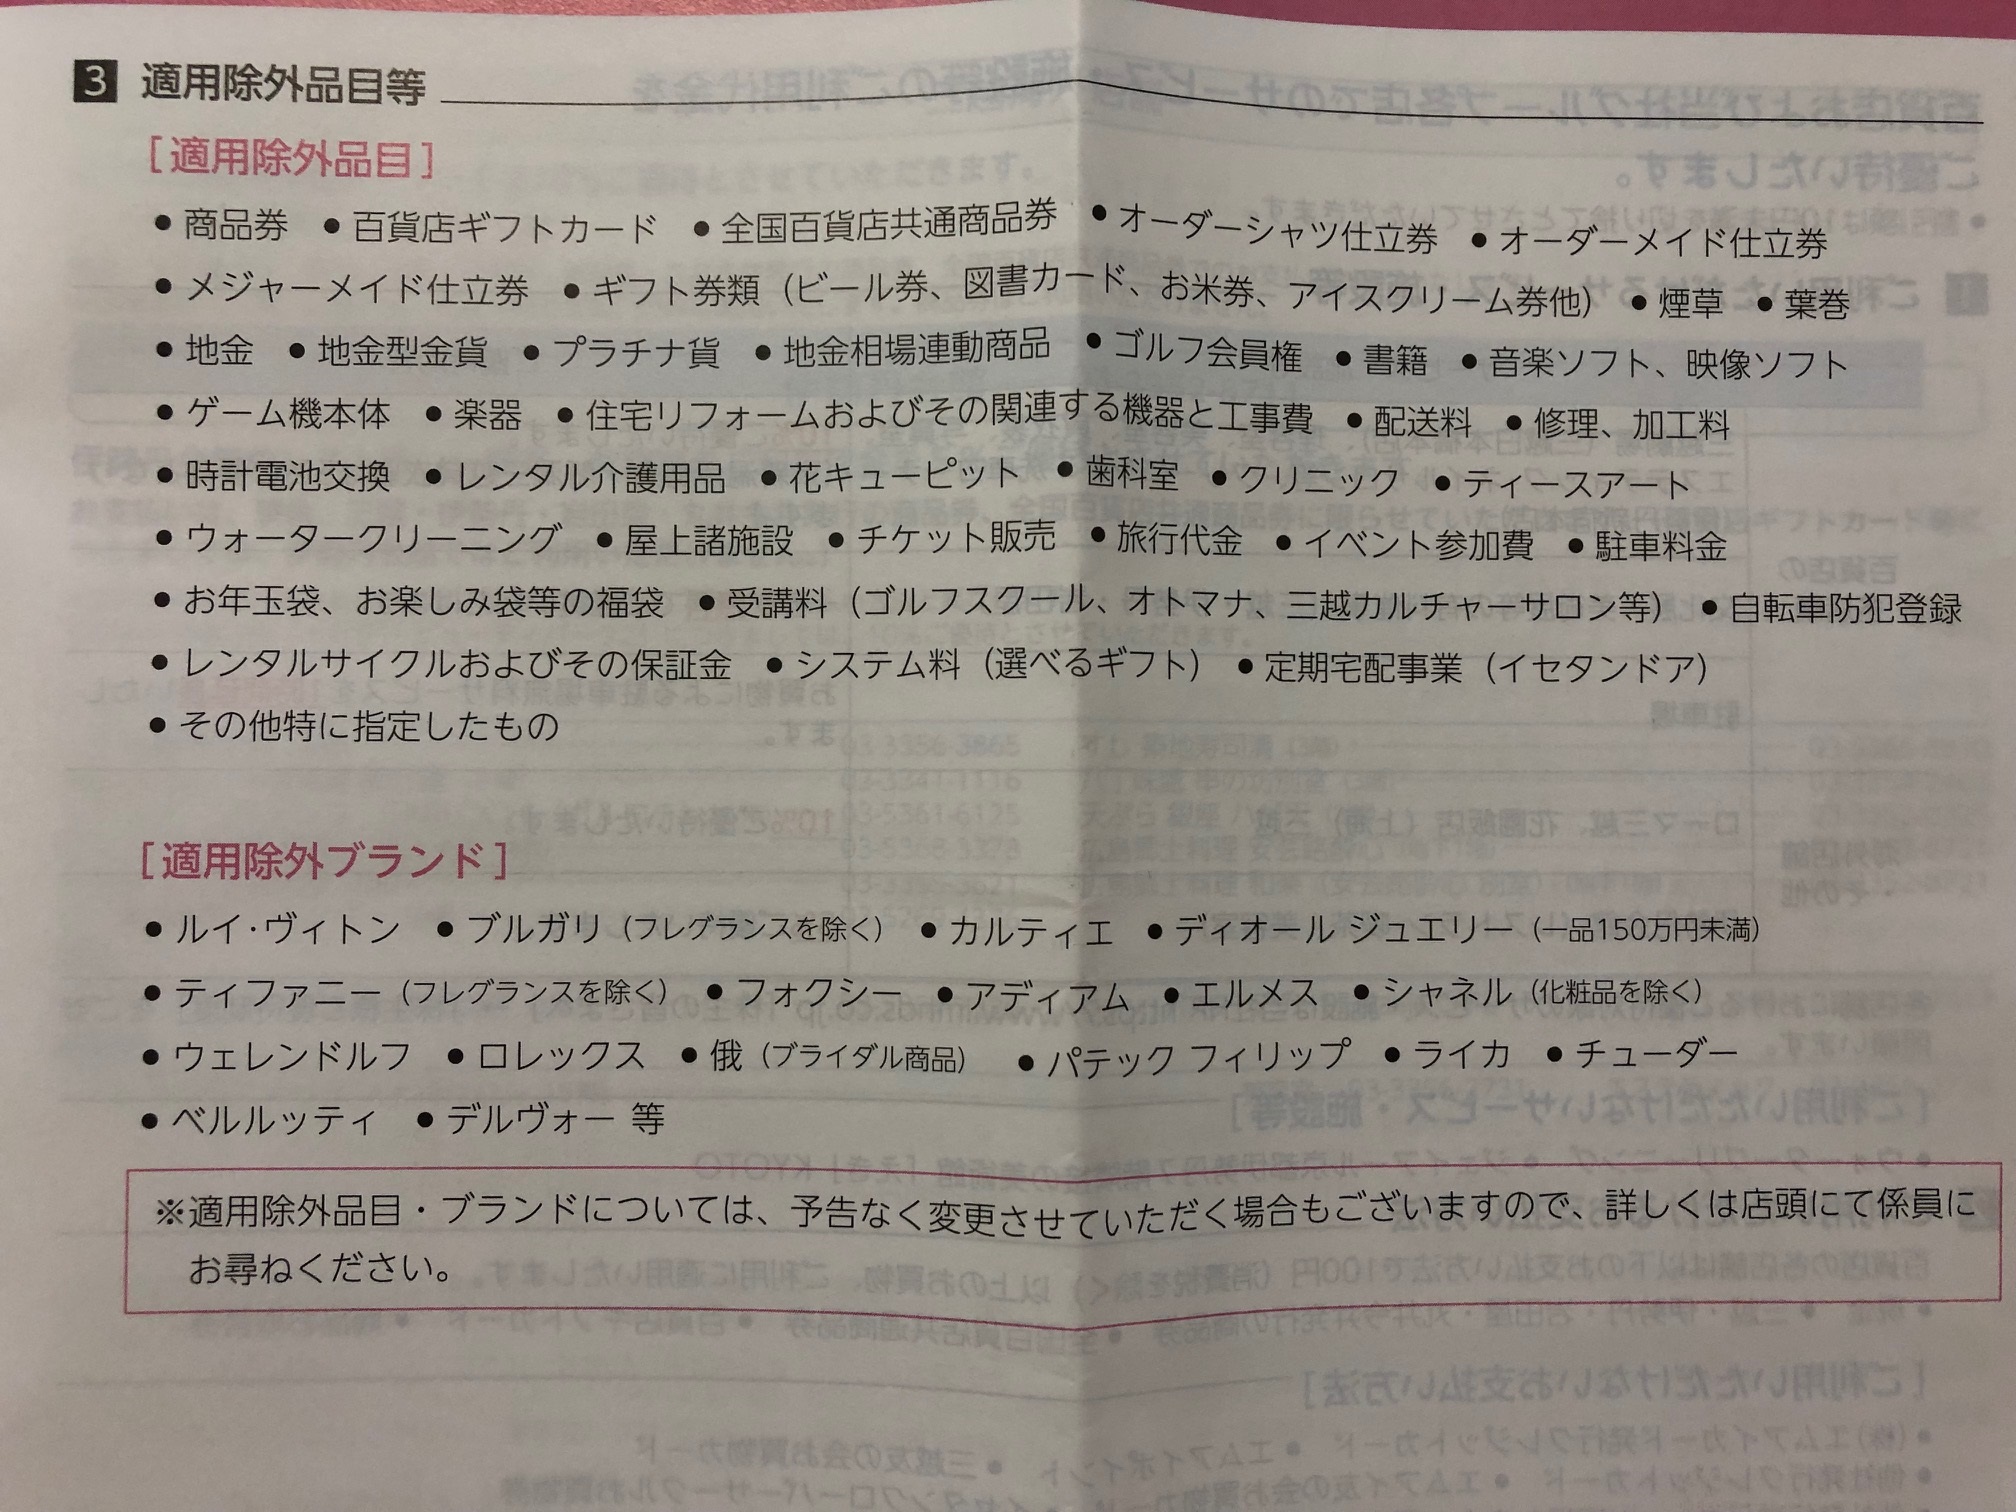 3 適用除外品目等
[適用除外品目]
●商品券 ●百貨店ギフトカード ●全国百貨店共通商品券 ●オーダーシャツ仕立券 ●オーダーメイド仕立券
●メジャーメイド仕立券 ●ギフト券類（ビール券、図書カード、お米券、アイスクリーム券他） ●煙草 ●葉巻
●地金 ●地金型金貨 ●プラチナ貨 ●地金相場連動商品 ●ゴルフ会員権 ●書籍 ●音楽ソフト、映像ソフト
●ゲーム機本体 ●楽器 ●住宅リフォームおよびその関連する機器と工事費 ●配送料 ●修理、加工料
●時計電池交換 ●レンタル介護用品 ●花キューピット ●歯科室 ●クリニック ●ティースアート
●ウォータークリーニング ●屋上諸施設 ●チケット販売 ●旅行代金 ●イベント参加費 ●駐車料金
●お年玉袋、お楽しみ袋等の福袋 ●受講料（ゴルフスクール、オトマナ、三越カルチャーサロン等） ●自転車防犯登録
●レンタルサイクルおよびその保証金 ●システム料（選べるギフト） ●定期宅配事業（イセタンドア）
●その他特に指定したもの
[適用除外ブランド]
●ルイ・ヴィトン ●ブルガリ（フレグランスを除く） ●カルティエ ●ディオール ジュエリー（一品150万円未満）
●ティファニー（フレグランスを除く） ●フォクシー ●アディアム ●エルメス ●シャネル（化粧品を除く）
●ウェレンドルフ ●ロレックス ●俄（ブライダル商品） ●パテック フィリップ ●ライカ ●チューダー
●ベルルッティ ●デルヴォー 等
※適用除外品目・ブランドについては、予告なく変更させていただく場合もございますので、詳しくは店頭にて係員に
お尋ねください。